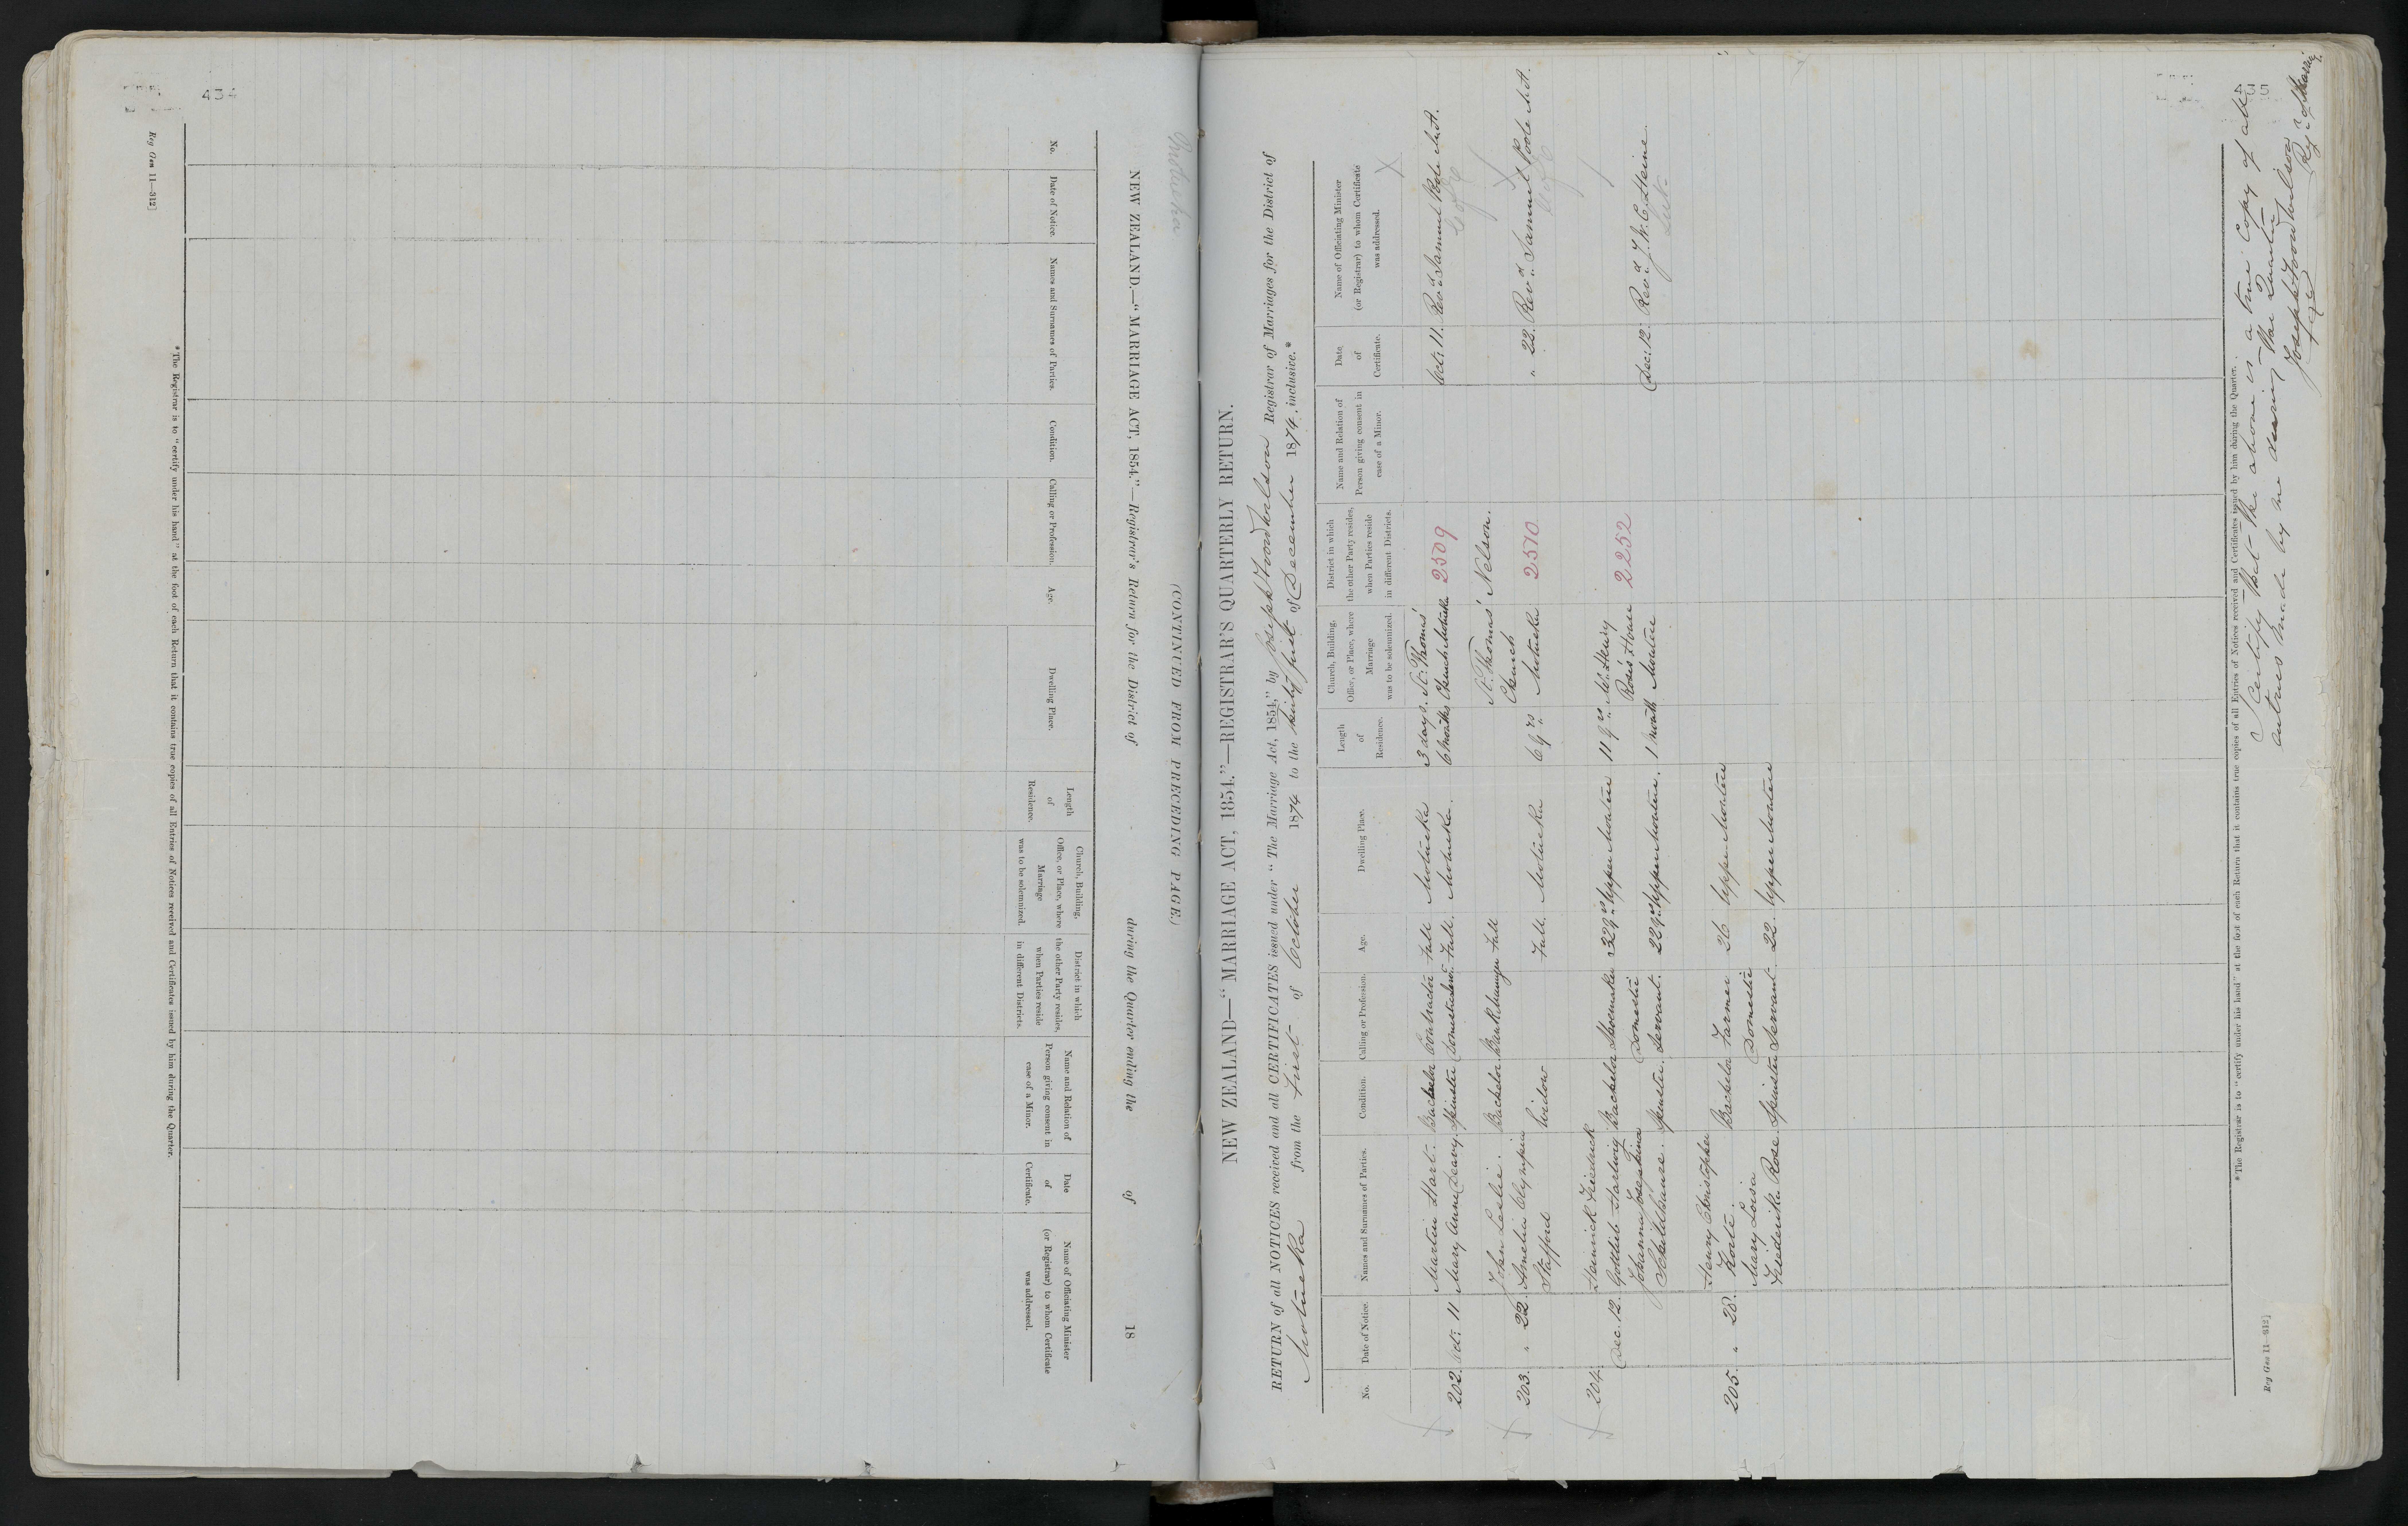 434
Motueka
NEW ZEALAND.—"MARRIAGE ACT, 1854."—Registrar's Return for the District of during the Quarter ending the of 18
(CONTINUED FROM PRECEDING PAGE.)
No.
Date of Notice.
Names and Surnames of Parties.
Condition.
Calling or Profession.
Age.
Dwelling Place.
Length of Residence.
Church, Building, Office, or Place, where Marriage was to be solemnized.
District in which the other Party resides, when Parties reside in different Districts.
Name and Relation of Person giving consent in case of a Minor.
Date of Certificate.
Name of Officiating Minister (or Registrar) to whom Certificate was addressed.
*The Registrar is to "certify under his hand" at the foot of each Return that it contains true copies of all Entries of Notices received and Certificates issued by him during the Quarter.
Reg Gen 11—312]
NEW ZEALAND—"MARRIAGE ACT, 1854."—REGISTRAR'S QUARTERLY RETURN.
RETURN of all NOTICES received and all CERTIFICATES issued under "The Marriage Act, 1854," by Joseph Foord Wilson Registrar of Marriages for the District of
Motueka from the first of October 1874 to the thirty first of December 1874, inclusive.*
No.
Date of Notice.
Names and Surnames of Parties.
Condition.
Calling or Profession.
Age.
Dwelling Place.
Length of Residence.
Church, Building, Office, or Place, where Marriage was to be solemnized.
District in which the other Party resides, when Parties reside in different Districts.
Name and Relation of Person giving consent in case of a Minor.
Date of Certificate.
Name of Officiating Minister (or Registrar) to whom Certificate was addressed.
Martin Hart. Bachelor Contractor Full Motueka 3 days. St. Thomas'
202. Oct: 11. Mary Anne Deavy. Spinster Domestic Full. Motueka. 6 Months Church Motueka 2509 Oct: 11. Revd. Samuel Poole M.A.
C of E
John Leslie. Bachelor Full St. Thomas' Nelson.
203. " 22. Amelia Olympia Church
Stafford Widow Full. Motueka 6 yrs. Motueka 2510 " 22. Revd. Samuel Poole M.A.
C of E
204. Heinrick Friedrick
Dec. 12. Gottlieb Hartwig Bachelor Shoemaker 32 yrs. Upper Moutere 11 yrs. Mr. Henry
Johanna Domestic Rose's House
Schildhauer. Spinster. Servant. 22 yrs. Upper Moutere. 1 month Moutere 2252 Dec: 12. Revd. J. W. C. Heine.
Luth
Henry Christopher
205. " 28. Korte. Bachelor Farmer 26 Upper Moutere
Mary Loisa Domestic
Frederika Rose Spinster Servant. 22. Upper Moutere
*The Registrar is to "certify under his hand" at the foot of each Return that it contains true copies of all Entries of Notices received and Certificates issued by him during the Quarter.
I Certify that the above is a true Copy of all
entries made by me during the Quarter
Joseph Foord Wilson
Reg. of Marrig
Reg Gen 11—312]